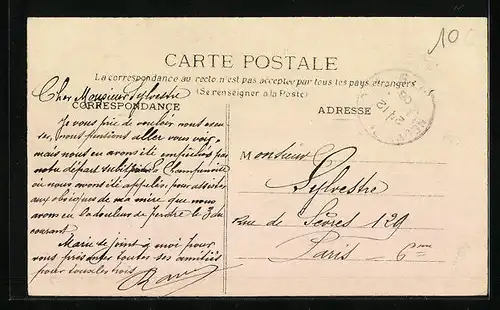 10
CARTE POSTALE
La correspondance au recto n'est pas acceptée par tous les pays étrangers
(Se renseigner à la Poste)
Cher Monsieur Sylvestre
CORRESPONDANCE
ADRESSE
Je vous prie de vouloir nous excu
ser, nous pensions aller vous voir
mais nous en avons été empêchés par
notre départ subit pour Champenoise
où nous avons été appelés pour assister
aux obsèques de ma mère que nous
avons eu la douleur de perdre le 3 du
courant
Marie se joint à moi pour
vous présenter toutes ses amitiés
pour tous les trois
Monsieur
Sylvestre
Rue de Sèvres 129
Paris - 6me